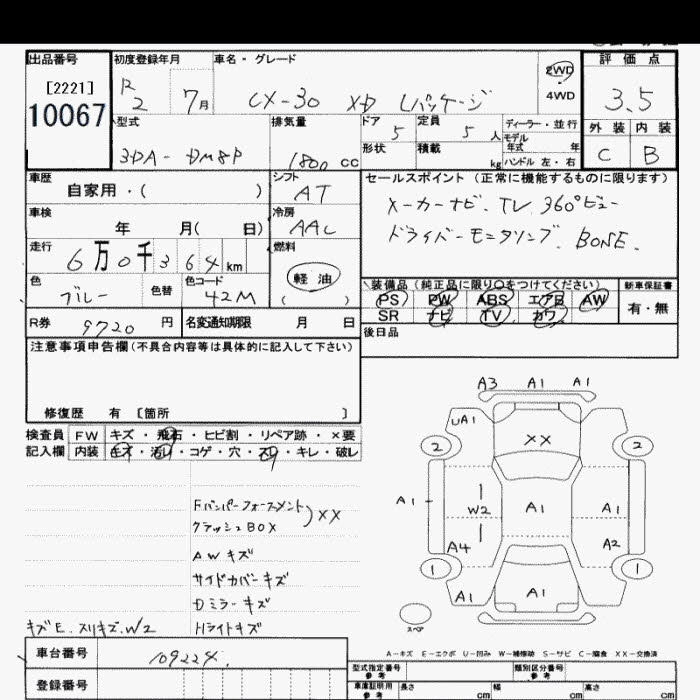 出品番号 初度登録年月 車名・グレード 評価点
[2221]
10067
R2 7月 CX-30 XD Lパッケージ 2WD 4WD 3.5
型式 排気量 ドア 定員 ディーラー・並行 外装 内装
3DA-DM8P 1800 cc 5 5人 モデル年式 年 C B
形状 積載 kg ハンドル 左・右
車歴 シフト セールスポイント (正常に機能するものに限ります)
自家用・( ) AT
メーカーナビ. TV 360°ビュー
車検 冷房
年 月( 日) AAC
ドライバーモニタリング. BOSE.
走行 燃料
6万0千364km 軽油
( )
色 色替 色コード
ブルー 42M
装備品 (純正品に限り○をつけてください) 新車保証書
PS PW ABS エアB AW 有・無
SR ナビ TV カワ
R券 9720 円 名変通知期限 月 日
後日品
注意事項申告欄(不具合内容等は具体的に記入して下さい)
修復歴 有 [箇所 ]
検査員 FW キズ・飛石・ヒビ割・リペア跡・×要
記入欄 内装 キズ・汚レ・コゲ・穴・スリ・キレ・破レ
A3 A1 A1
UA1
XX
2 2
A1 W2 A1 A1
A4 A2
1 1
A1 A1
スペア
Fバンパーフォースメント
クラッシュBOX
)XX
AWキズ
サイドカバーキズ
Dミラーキズ
キズE.スリキズ.W2 Hライトキズ
A-キズ E-エクボ U-凹み W-補修跡 S-サビ C-腐食 XX-交換済
車台番号 109224.
登録番号
型式指定番号 参考 類別区分番号 参考
車庫証明用 参考 長さ cm 幅 cm 高さ cm